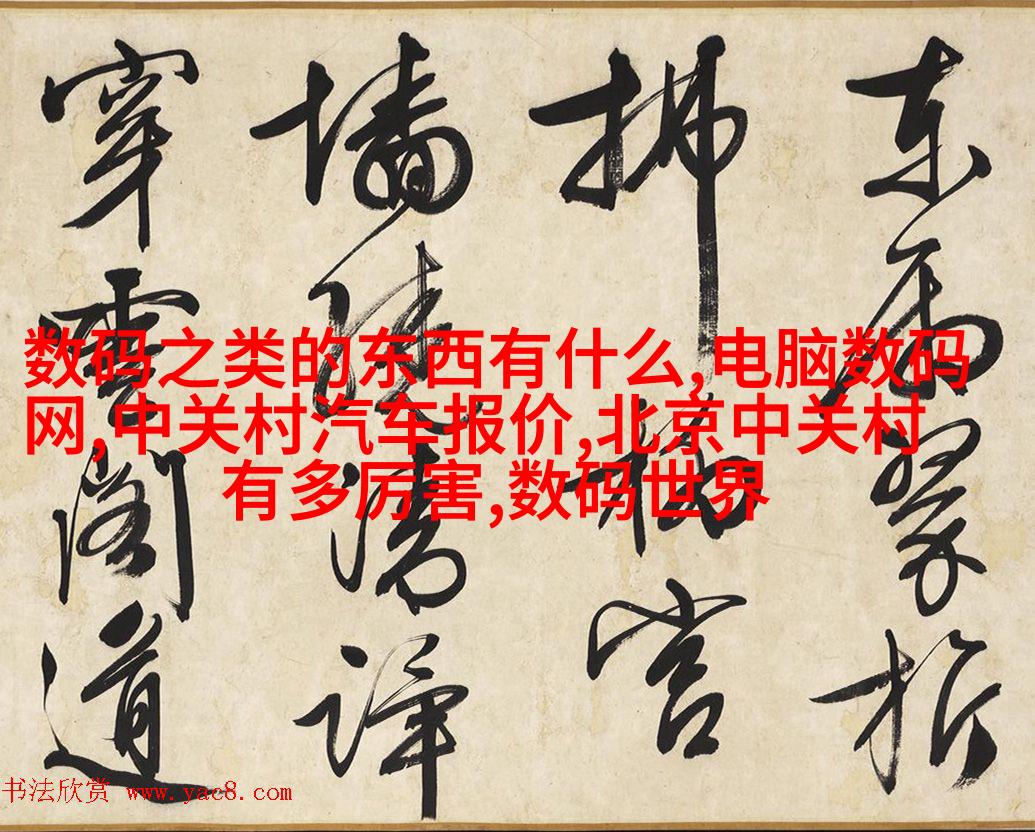 東翠
拂
墙清
穿雲閣道
数码之类的东西有什么,电脑数码
网,中关村汽车报价,北京中关村
有多厉害,数码世界
书法欣赏 www.yac8.com